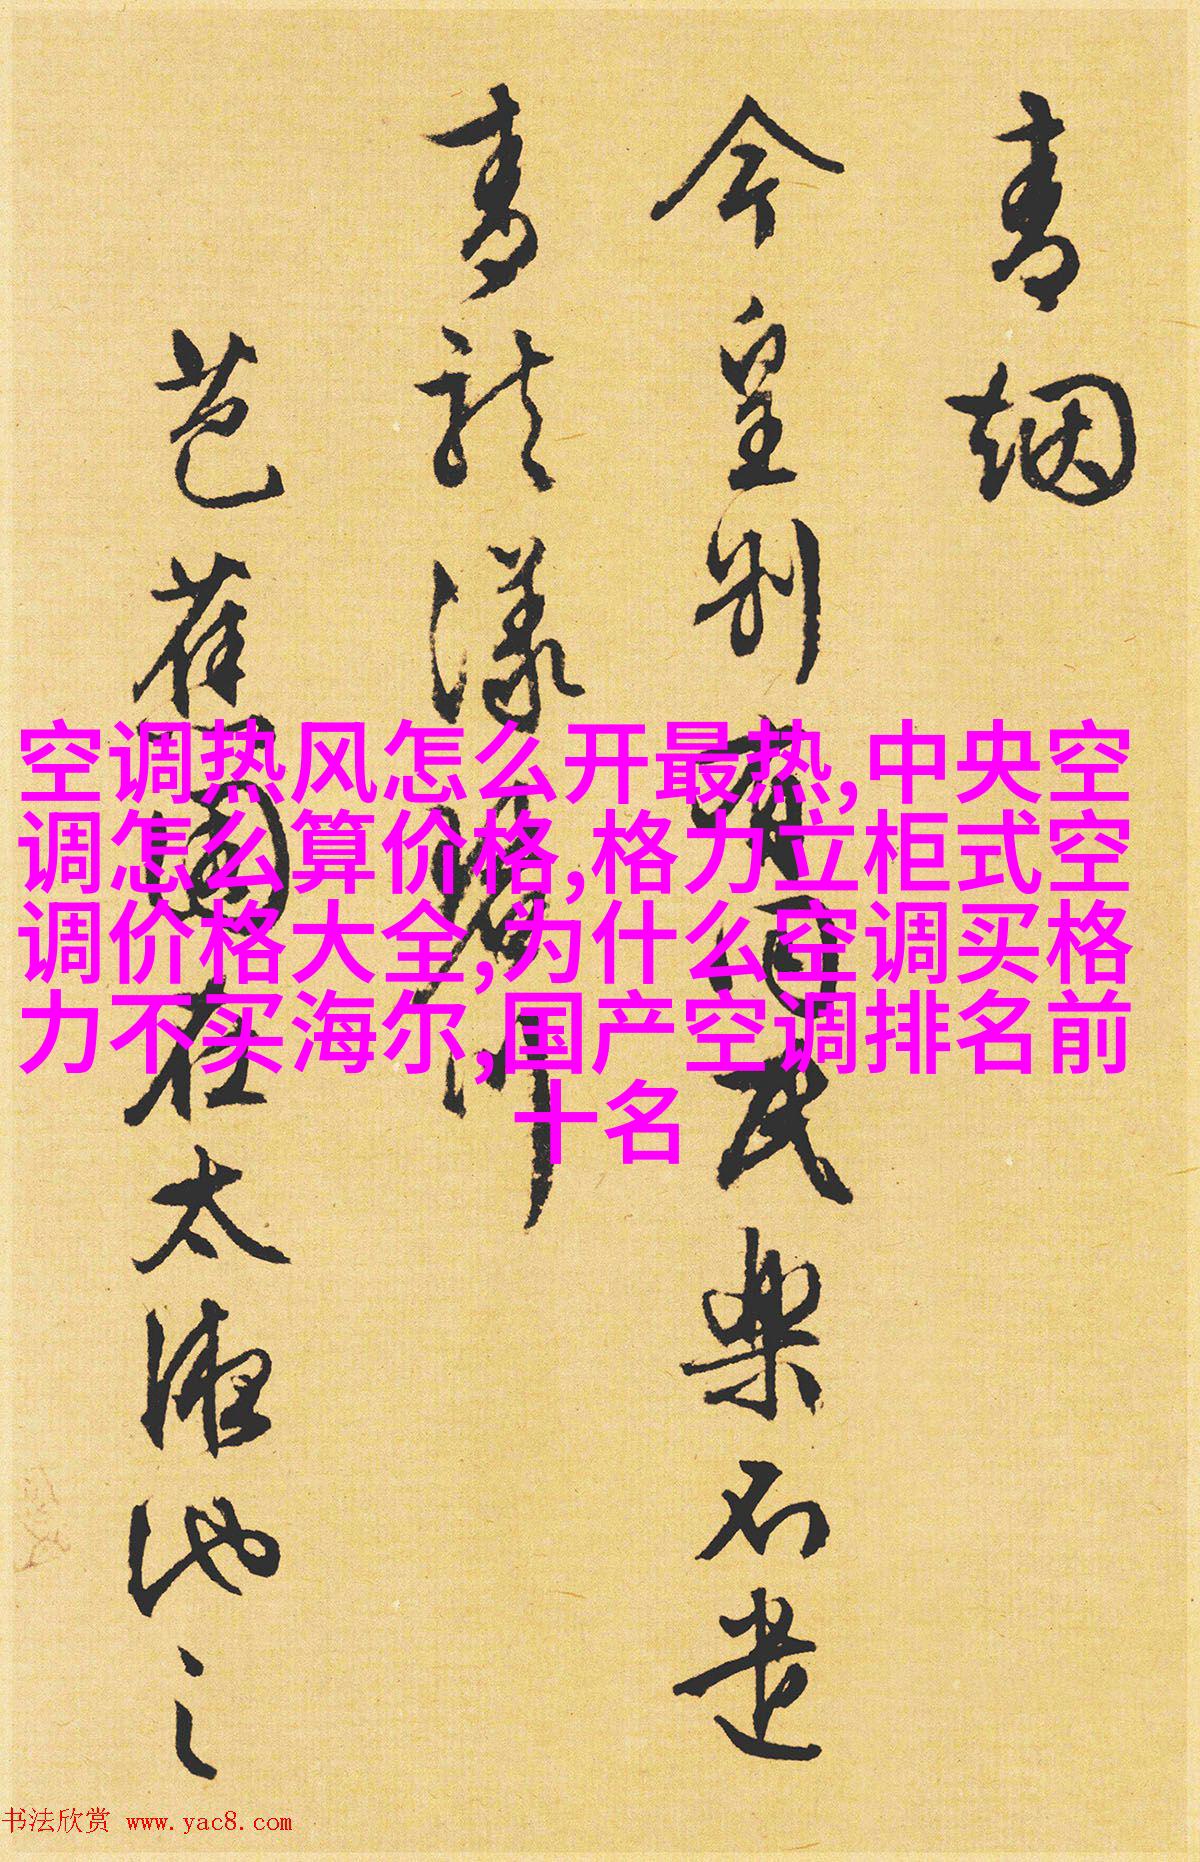 青烟
今皇别有回武樂石遣
青龍漾碧川
芭蕉園在太液池之
空调热风怎么开最热,中央空
调怎么算价格,格力立柜式空
调价格大全,为什么空调买格
力不买海尔,国产空调排名前
十名
书法欣赏 www.yac8.com